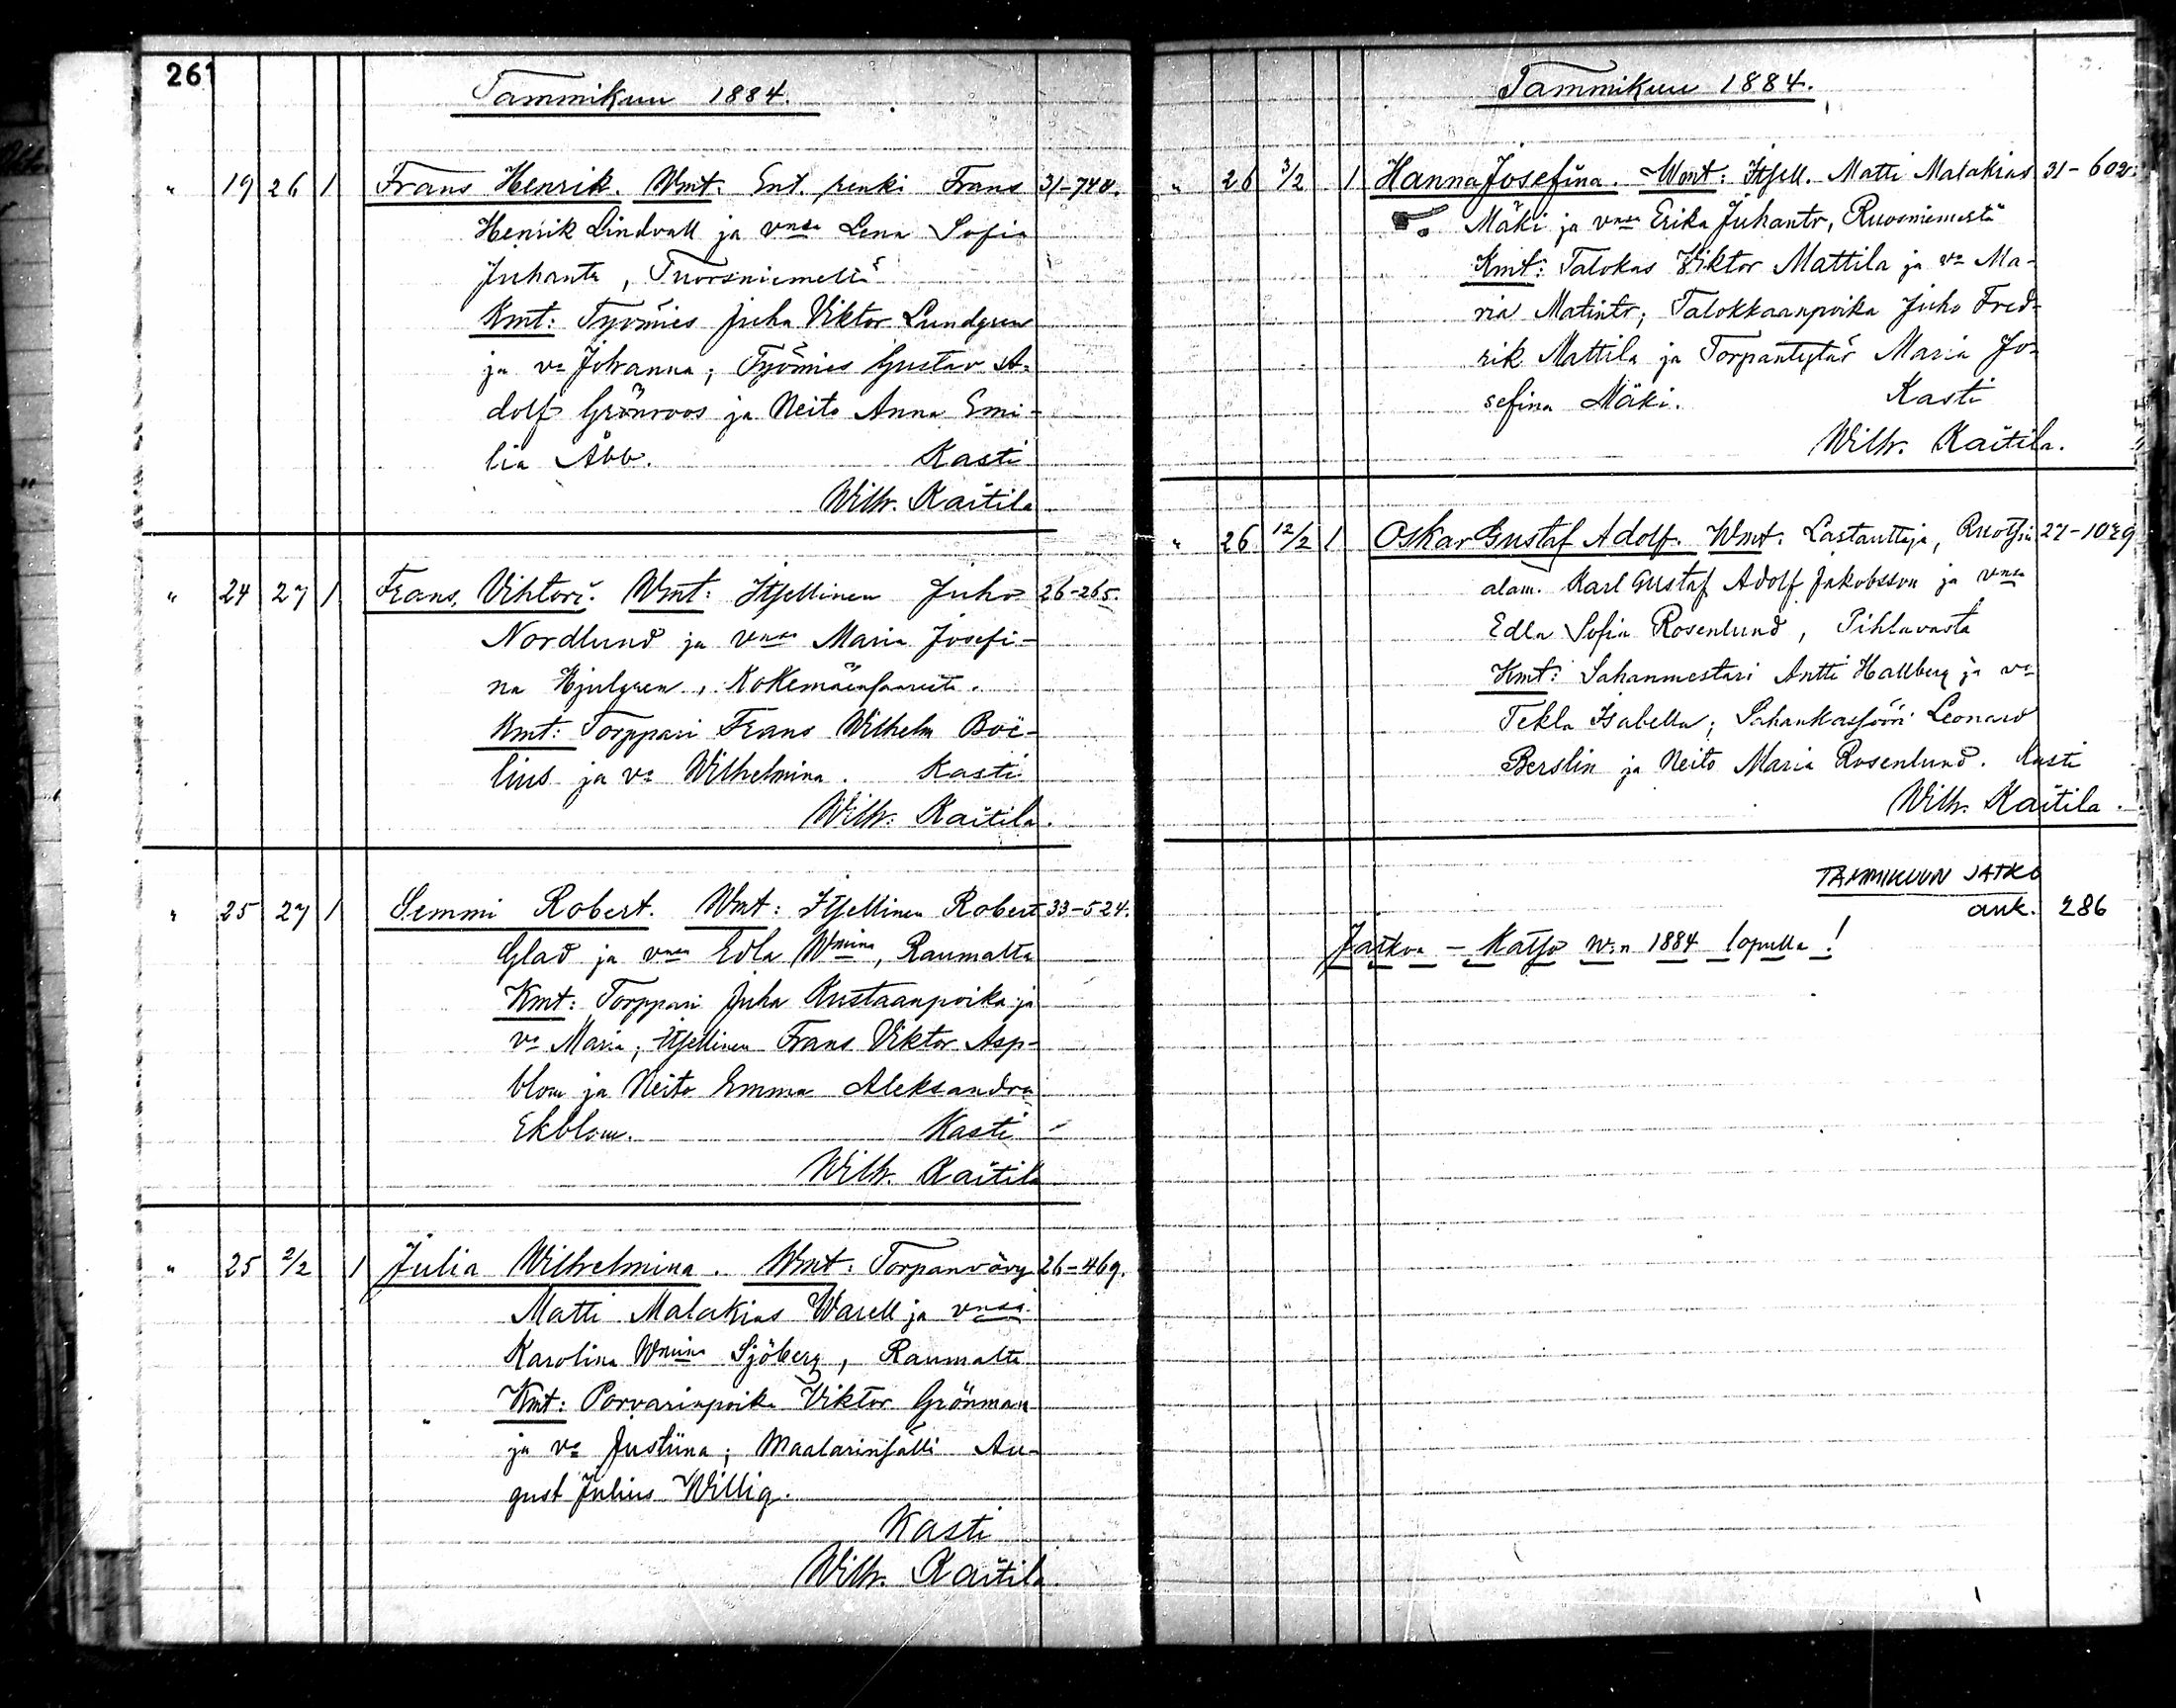 261
Tammikuu 1884.
" 19 26 1 Frans Henrik. Wmt: Ent. renki Frans 31-740.
Henrik Lindvall ja vnsa Lena Sofia
Juhant., Tuorsniemeltä
Kmt: Työmies Juha Viktor Lundgren
ja va Johanna; Työmies Gustav A-
dolf Grönroos ja Neito Anna Emi-
lia Åbb. Kasti
Wilh. Kaitila
" 24 27 1 Frans Vihtori. Wmt: Itsellinen Juho 26-265.
Nordlund ja vnsa Maria Josefi-
na Hjulgren, Kokemäensaarelta.
Kmt: Torppari Frans Wilhelm Boë-
lius ja va Wilhelmina. Kasti
Wilh. Kaitila.
" 25 27 1 Semmi Robert. Wmt: Itsellinen Robert 33-524.
Glad ja vnsa Edla Wmina, Raumalta
Kmt: Torppari Juha Kustaanpoika ja
va Maria; Itsellinen Frans Viktor Asp-
blom ja Neito Emma Aleksandra
Ekblom. Kasti
Wilh. Kaitila
" 25 2/2 1 Julia Wilhelmina. Wmt: Torpanvävy 26-469.
Matti Malakias Warell ja vnsa
Karolina Wmina Sjöberg, Raumalta
Kmt: Porvarinpoika Viktor Grönman
ja va Justiina; Maalarinsälli Au-
gust Julius Willig.
Kasti
Wilh. Kaitila
Tammikuu 1884.
" 26 3/2 1 Hanna Josefina. Wmt: Itsell. Matti Malakias 31-602.
Mäki ja vnsa Erika Juhantr, Ruosniemestä
Kmt: Talokas Viktor Mattila ja va Ma-
ria Matintr; Talokkaanpoika Juho Fred-
rik Mattila ja Torpantytär Maria Jo-
sefina Mäki. Kasti
Wilh. Kaitila.
" 26 12/2 1 Oskar Gustaf Adolf. Wmt: Lastauttaja, Ruotsin 27-1029
alam. Karl Gustaf Adolf Jakobsson ja vnsa
Edla Sofia Rosenlund, Pihlavasta
Kmt: Sahanmestari Antti Hallberg ja va
Tekla Isabella; Sahankassööri Leonard
Berslin ja Neito Maria Rosenlund. Kasti
Wilh. Kaitila.
TAMMIKUUN JATKO
auk. 286
Jatkoa - Katso w:n 1884 lopulla!